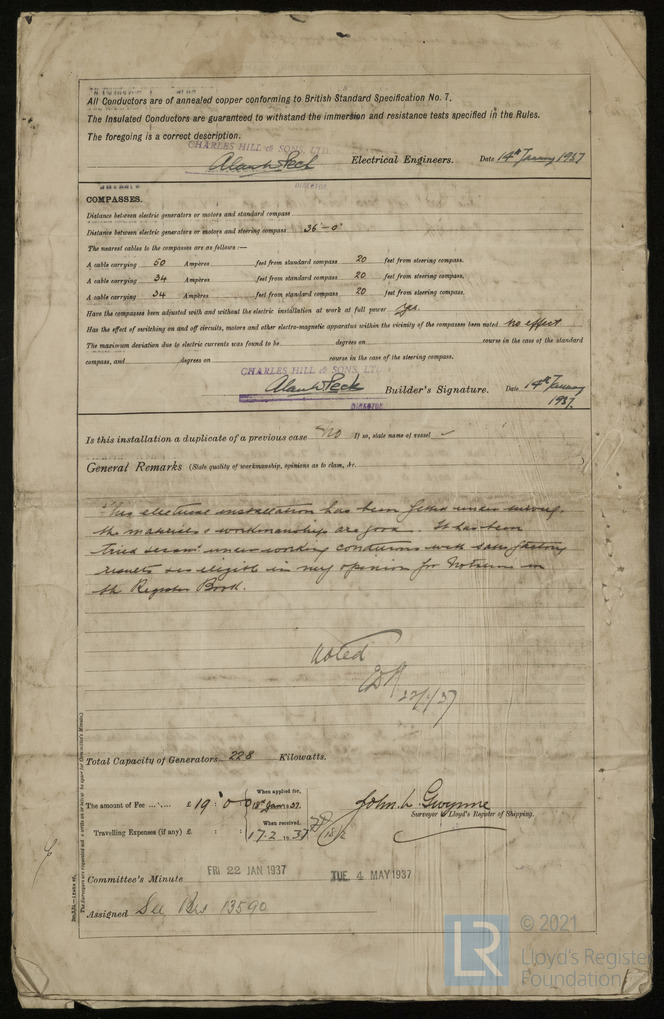 All Conductors are of annealed copper conforming to British Standard Specification No. 7.
The Insulated Conductors are guaranteed to withstand the immersion and resistance tests specified in the Rules.
The foregoing is a correct description.
CHARLES HILL & SONS, LTD.
Alan W Peck Electrical Engineers. Date 14th January 1937
DIRECTOR
COMPASSES.
Distance between electric generators or motors and standard compass
Distance between electric generators or motors and steering compass 36'-0"
The nearest cables to the compasses are as follows:—
A cable carrying 50 Ampères feet from standard compass 20 feet from steering compass.
A cable carrying 34 Ampères feet from standard compass 20 feet from steering compass.
A cable carrying 34 Ampères feet from standard compass 20 feet from steering compass.
Have the compasses been adjusted with and without the electric installation at work at full power yes
Has the effect of switching on and off circuits, motors and other electro-magnetic apparatus within the vicinity of the compasses been noted no effect
The maximum deviation due to electric currents was found to be degrees on course in the case of the standard
compass, and degrees on course in the case of the steering compass.
CHARLES HILL & SONS, LTD.
Alan W Peck Builder's Signature. Date 14th January
DIRECTOR 1937.
Is this installation a duplicate of a previous case No If so, state name of vessel
General Remarks (State quality of workmanship, opinions as to class, &c.
This electrical installation has been fitted under survey.
the materials & workmanship are good. It has been
tried under working conditions with satisfactory
results & is eligible in my opinion for notation in
the Register Book.
Noted
22/1/37
Total Capacity of Generators 228 Kilowatts.
The amount of Fee ... £ 19 : 0 : 0
When applied for,
18th Jan 1937.
When received,
Travelling Expenses (if any) £ : : 17.2.1937
18/2
John L Gwynne
Surveyor to Lloyd's Register of Shipping.
Committee's Minute FRI 22 JAN 1937 TUE. 4 MAY 1937
Assigned See Brs 13590
The Surveyors are requested not to write on or below the space for Committee's Minute.
LR
© 2021
Lloyd's Register
Foundation